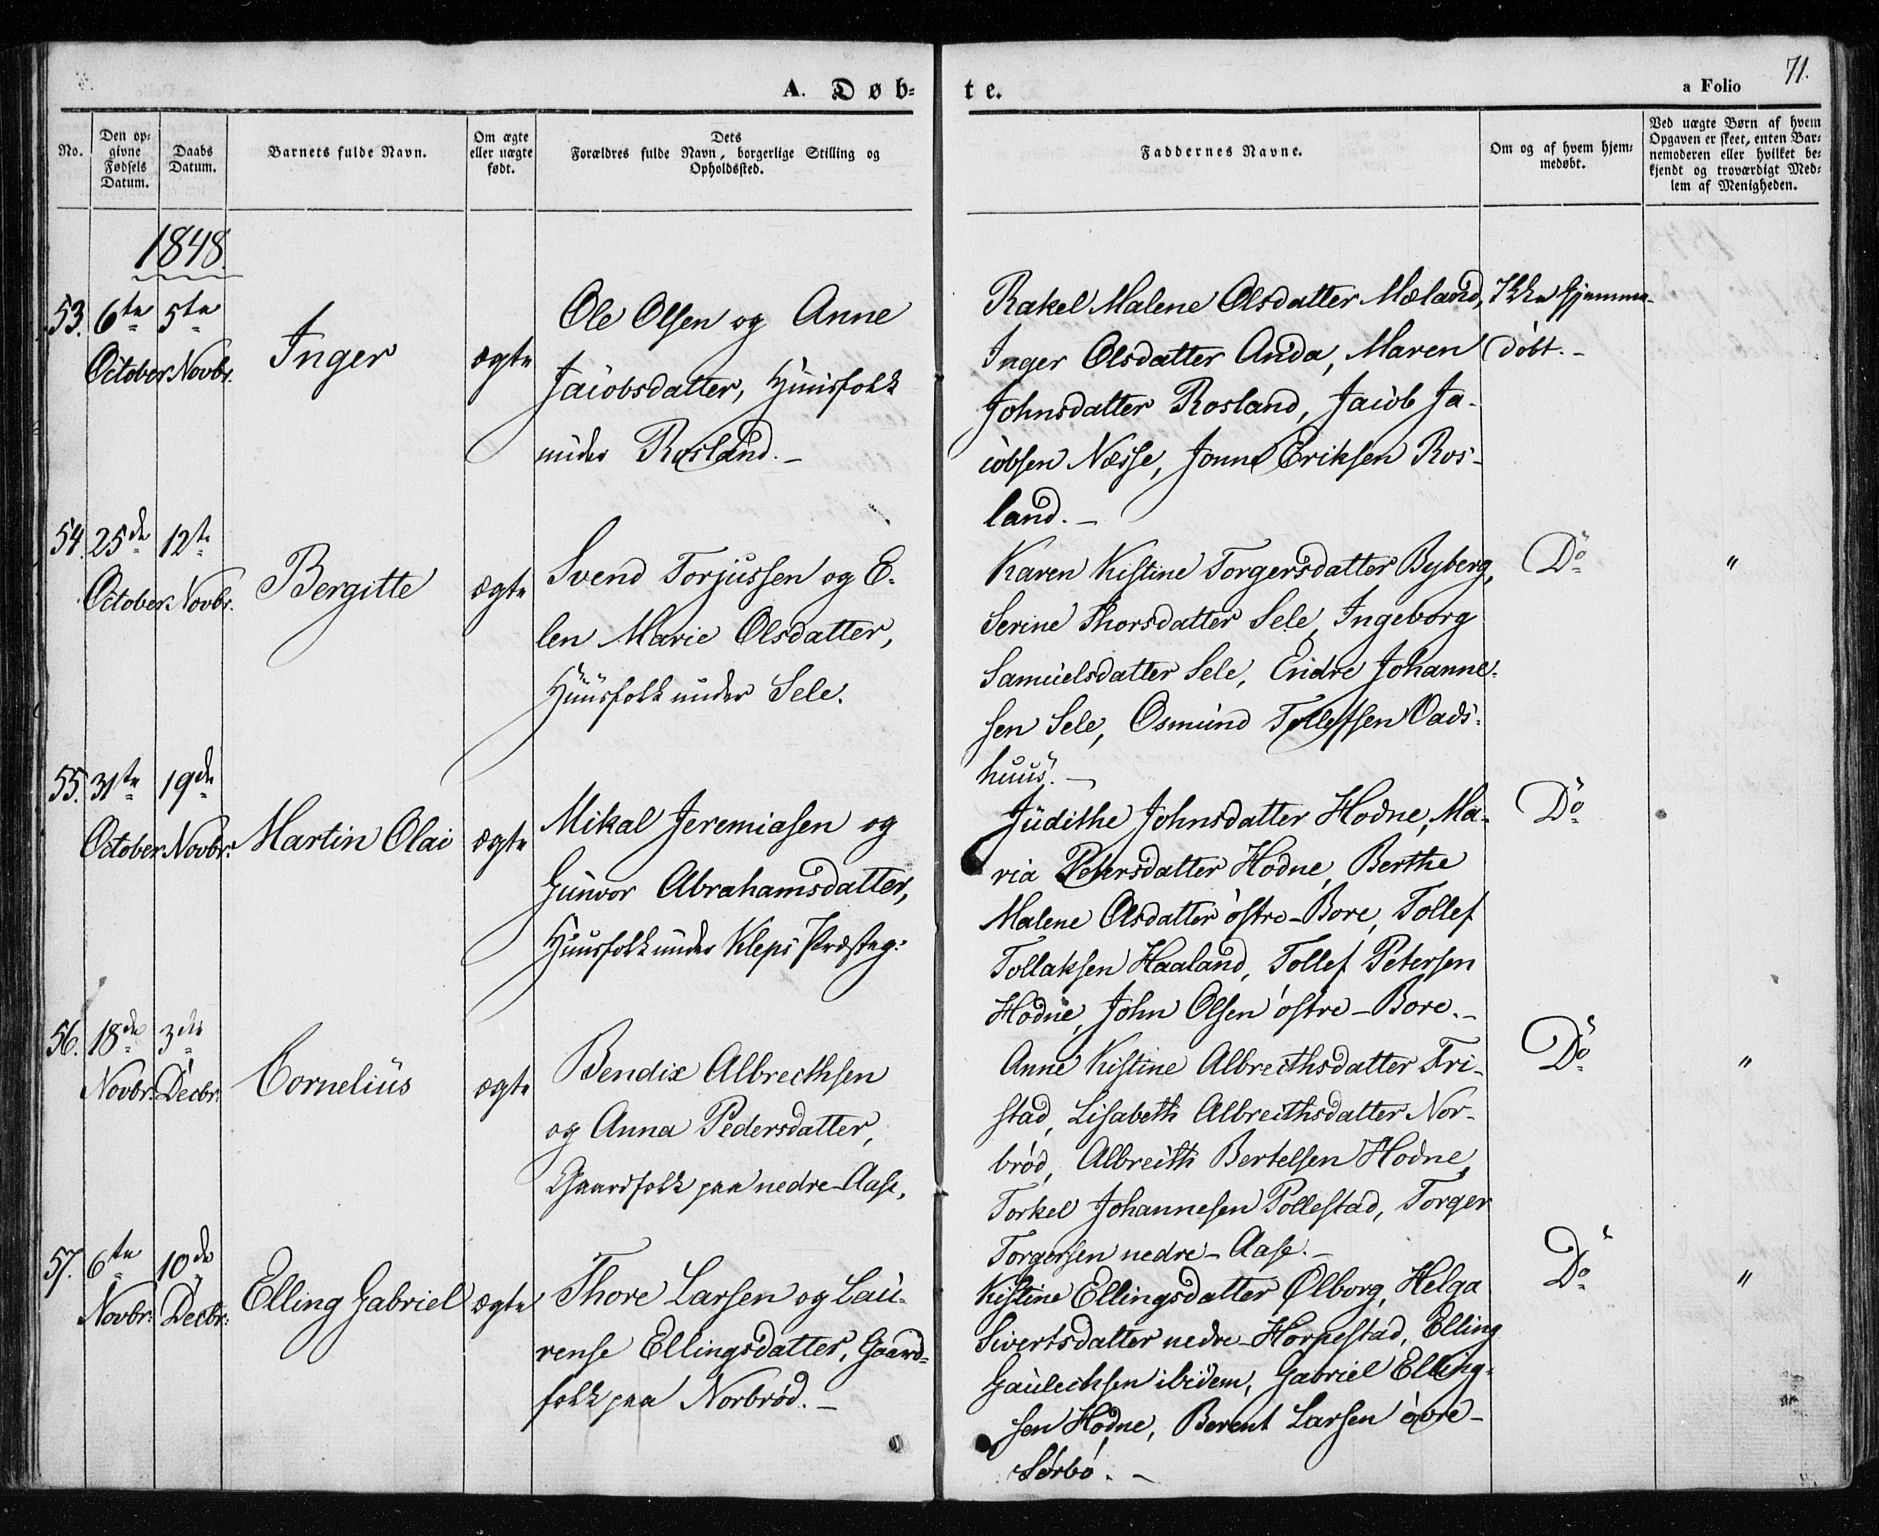 A. Døb-
te.
a Folio
71.
No.
Den op-
givne
Fødsels
Datum.
Daabs
Datum.
Barnets fulde Navn.
Om ægte
eller uægte
født.
Dets
Forældres fulde Navn, borgerlige Stilling og
Opholdssted.
Faddernes Navne.
Om og af hvem hjem-
medøbt.
Ved uægte Børn af hvem
Opgaven er skeet, enten Bar-
nemoderen eller hvilket be-
kjendt og troværdigt Med-
lem af Menigheden.
1848.
53.
6te
October
5te
Novbr.
Inger
ægte
Ole Olsen og Anne
Jacobsdatter, Huusfolk
under Rosland. -
Rakel Malene Olsdatter Mæland,
Inger Olsdatter Anda, Maren
Johnsdatter Rosland, Jacob Ja-
cobsen Næsse, Jonne Eriksen Ros-
land. -
Ikke Hjemme-
døbt. -
54.
25de
October
12te
Novbr.
Bergitte
ægte
Svend Torjussen og E-
len Marie Olsdatter,
Huusfolk under Sele.
Karen Kistine Torgersdatter Byberg,
Serine Thorsdatter Sele, Ingeborg
Samuelsdatter Sele, Endre Johanne-
sen Sele, Osmund Tollefsen Oads-
huus. -
Do
"
55.
31te
October
19de
Novbr:
Martin Olai
ægte
Mikal Jeremiasen og
Gunvor Abrahamsdatter,
Huusfolk under Kleps Præsteg:
Judithe Johnsdatter Hodne, Ma-
ria Petersdatter Hodne, Berthe
Malene Olsdatter østre-Bore, Tollef
Tollaksen Haaland, Tollef Petersen
Hodne, John Olsen østre-Bore. -
Do
56.
18de
Novbr:
3die
Decbr:
Cornelius
ægte
Bendix Albrecthsen
og Anna Pedersdatter,
Gaardfolk paa nedre-Aase,
Anne Kistine Albrecthsdatter Fri-
stad, Lisabeth Albrecthsdatter Nor-
brød, Albrecth Bertelsen Hodne,
Torkel Johannesen Pollestad, Torger
Torgersen nedre-Aase. -
Do
"
57.
6te
Novbr:
10de
Decbr:
Elling Gabriel
ægte
Thore Larsen og Lau-
rense Ellingsdatter, Gaard-
folk paa Norbrød. -
Kistine Ellingsdatter Ølborg, Helga
Sivertsdatter nedre-Horpestad, Elling
Gaulecksen ibidem, Gabriel Elling-
sen Hodne, Berent Larsen øvre-
Sørbø. -
Do
"